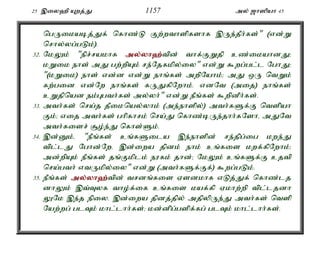 25 இலைஹி யுறத்து 1157 அல் ஜாஸியா 45
பெருமையடித்துக் கொண்டு குற்றவாளிகளாக இருந்தீர்கள்" (என்று
சொல்லப்படும்)
32. மேலும் "நிச்சயமாக அல்லாஹ்வின் வாக்குறுதி உண்மையானது;
மறுமை நாள் அது பற்றியும் சந்தேகமில்லை" என்று கூறப்பட்ட போது;
"(மறுமை) நாள் என்ன என்று நாங்கள் அறியோம்; அது ஒரு வெறும்
கற்பனை என்றே நாங்கள் கருதுகிறோம். எனவே (அதை) நாங்கள்
உறுதியென நம்புபவர்கள் அல்லர்" என்று நீங்கள் கூறினீர்கள்.
33. அவர்கள் செய்த தீமையெல்லாம் (அந்நாளில்) அவர்களுக்கு வெளியா
கும்; எதை அவர்கள் பரிகாசம் செய்து கொண்டிருந்தார்களோ, அதுவே
அவர்களைச் சூழ்ந்து கொள்ளும்.
34. இன்னும், "நீங்கள் உங்களுடைய இந்நாளின் சந்திப்பை மறந்து
விட்டது போன்றே, இன்றைய தினம் நாம் உங்களை மறக்கிறோம்;
அன்றியும் நீங்கள் தங்குமிடம் நரகம் தான்; மேலும் உங்களுக்கு உதவி
செய்பவர் எவருமில்லை" என்று (அவர்களுக்குக்) கூறப்படும்.
35. நீங்கள் அல்லாஹ்வின் வசனங்களை ஏளனமாக எடுத்துக் கொண்டத
னாலும் இவ்வுலக வாழ்க்கை உங்களை மயக்கி ஏமாற்றி விட்டதனா
லுமே இந்த நிலை. இன்றைய தினத்தில் அதிலிருந்து அவர்கள் வெளி
யேற்றப் படவும் மாட்டார்கள்; மன்னிப்பளிக்கப் படவும் மாட்டார்கள்.